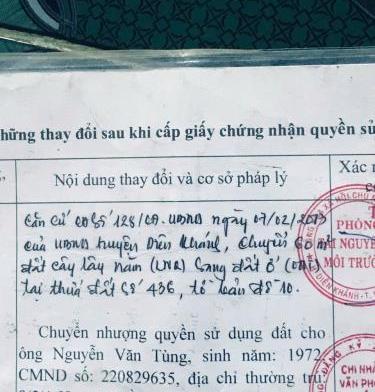 hững thay đổi sau khi cấp giấy chứng nhận quyền sử
Nội dung thay đổi và cơ sở pháp lý
Xác n
Căn cứ QĐ số 128/QĐ.UBND ngày 07/02/2013
của UBND huyện Diên Khánh, chuyển
đất cây lâu năm (LNK) sang đất ở
tại thửa đất số 436, tờ bản đồ 10.
PHÒNG
NGUYÊ
MÔI TRƯỜ
Chuyển nhượng quyền sử dụng đất cho
ông Nguyễn Văn Tùng, sinh năm: 1972
CMND số: 220829635, địa chỉ thường trú
CHI NHÁ
VĂN PHÒ